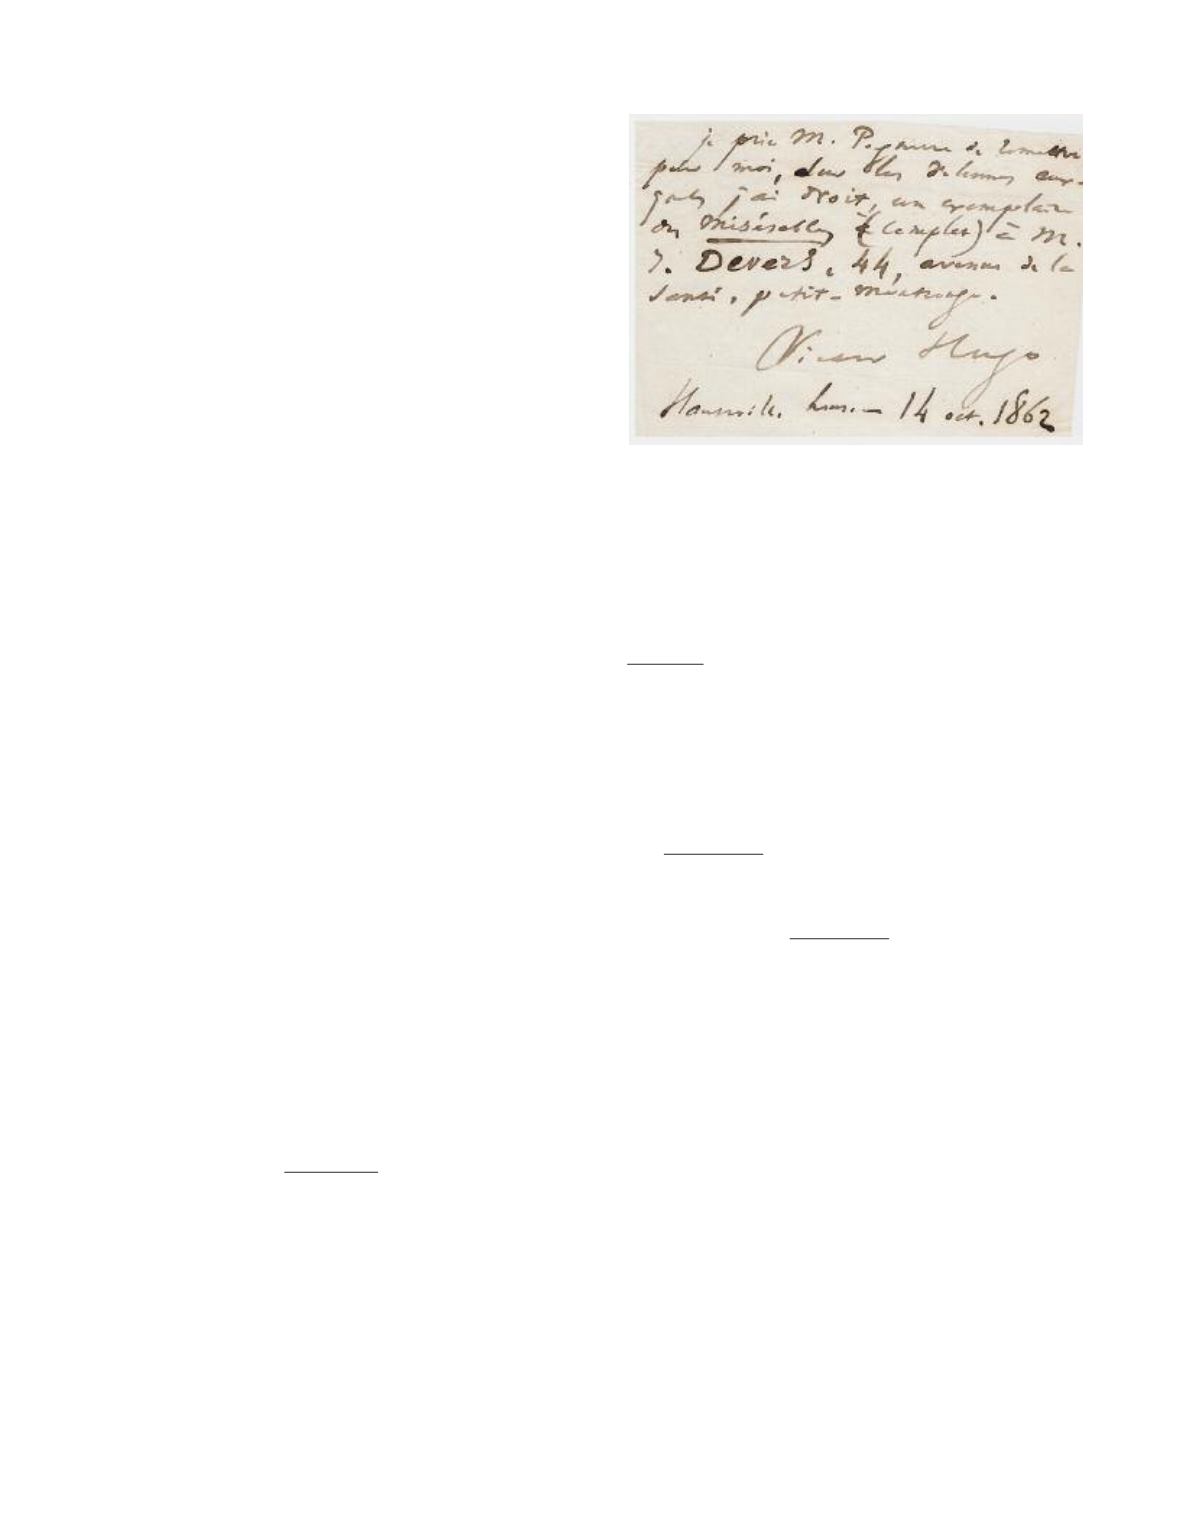 je prie M. Pagnerre de remettre
pour moi, sur les volumes aux-
quels j'ai droit, un exemplaire
des Misérables (complet) à M.
J. Devers, 44, avenue de la
Santé, petit-Montrouge.
Victor Hugo
Hauteville house 14 oct. 1862